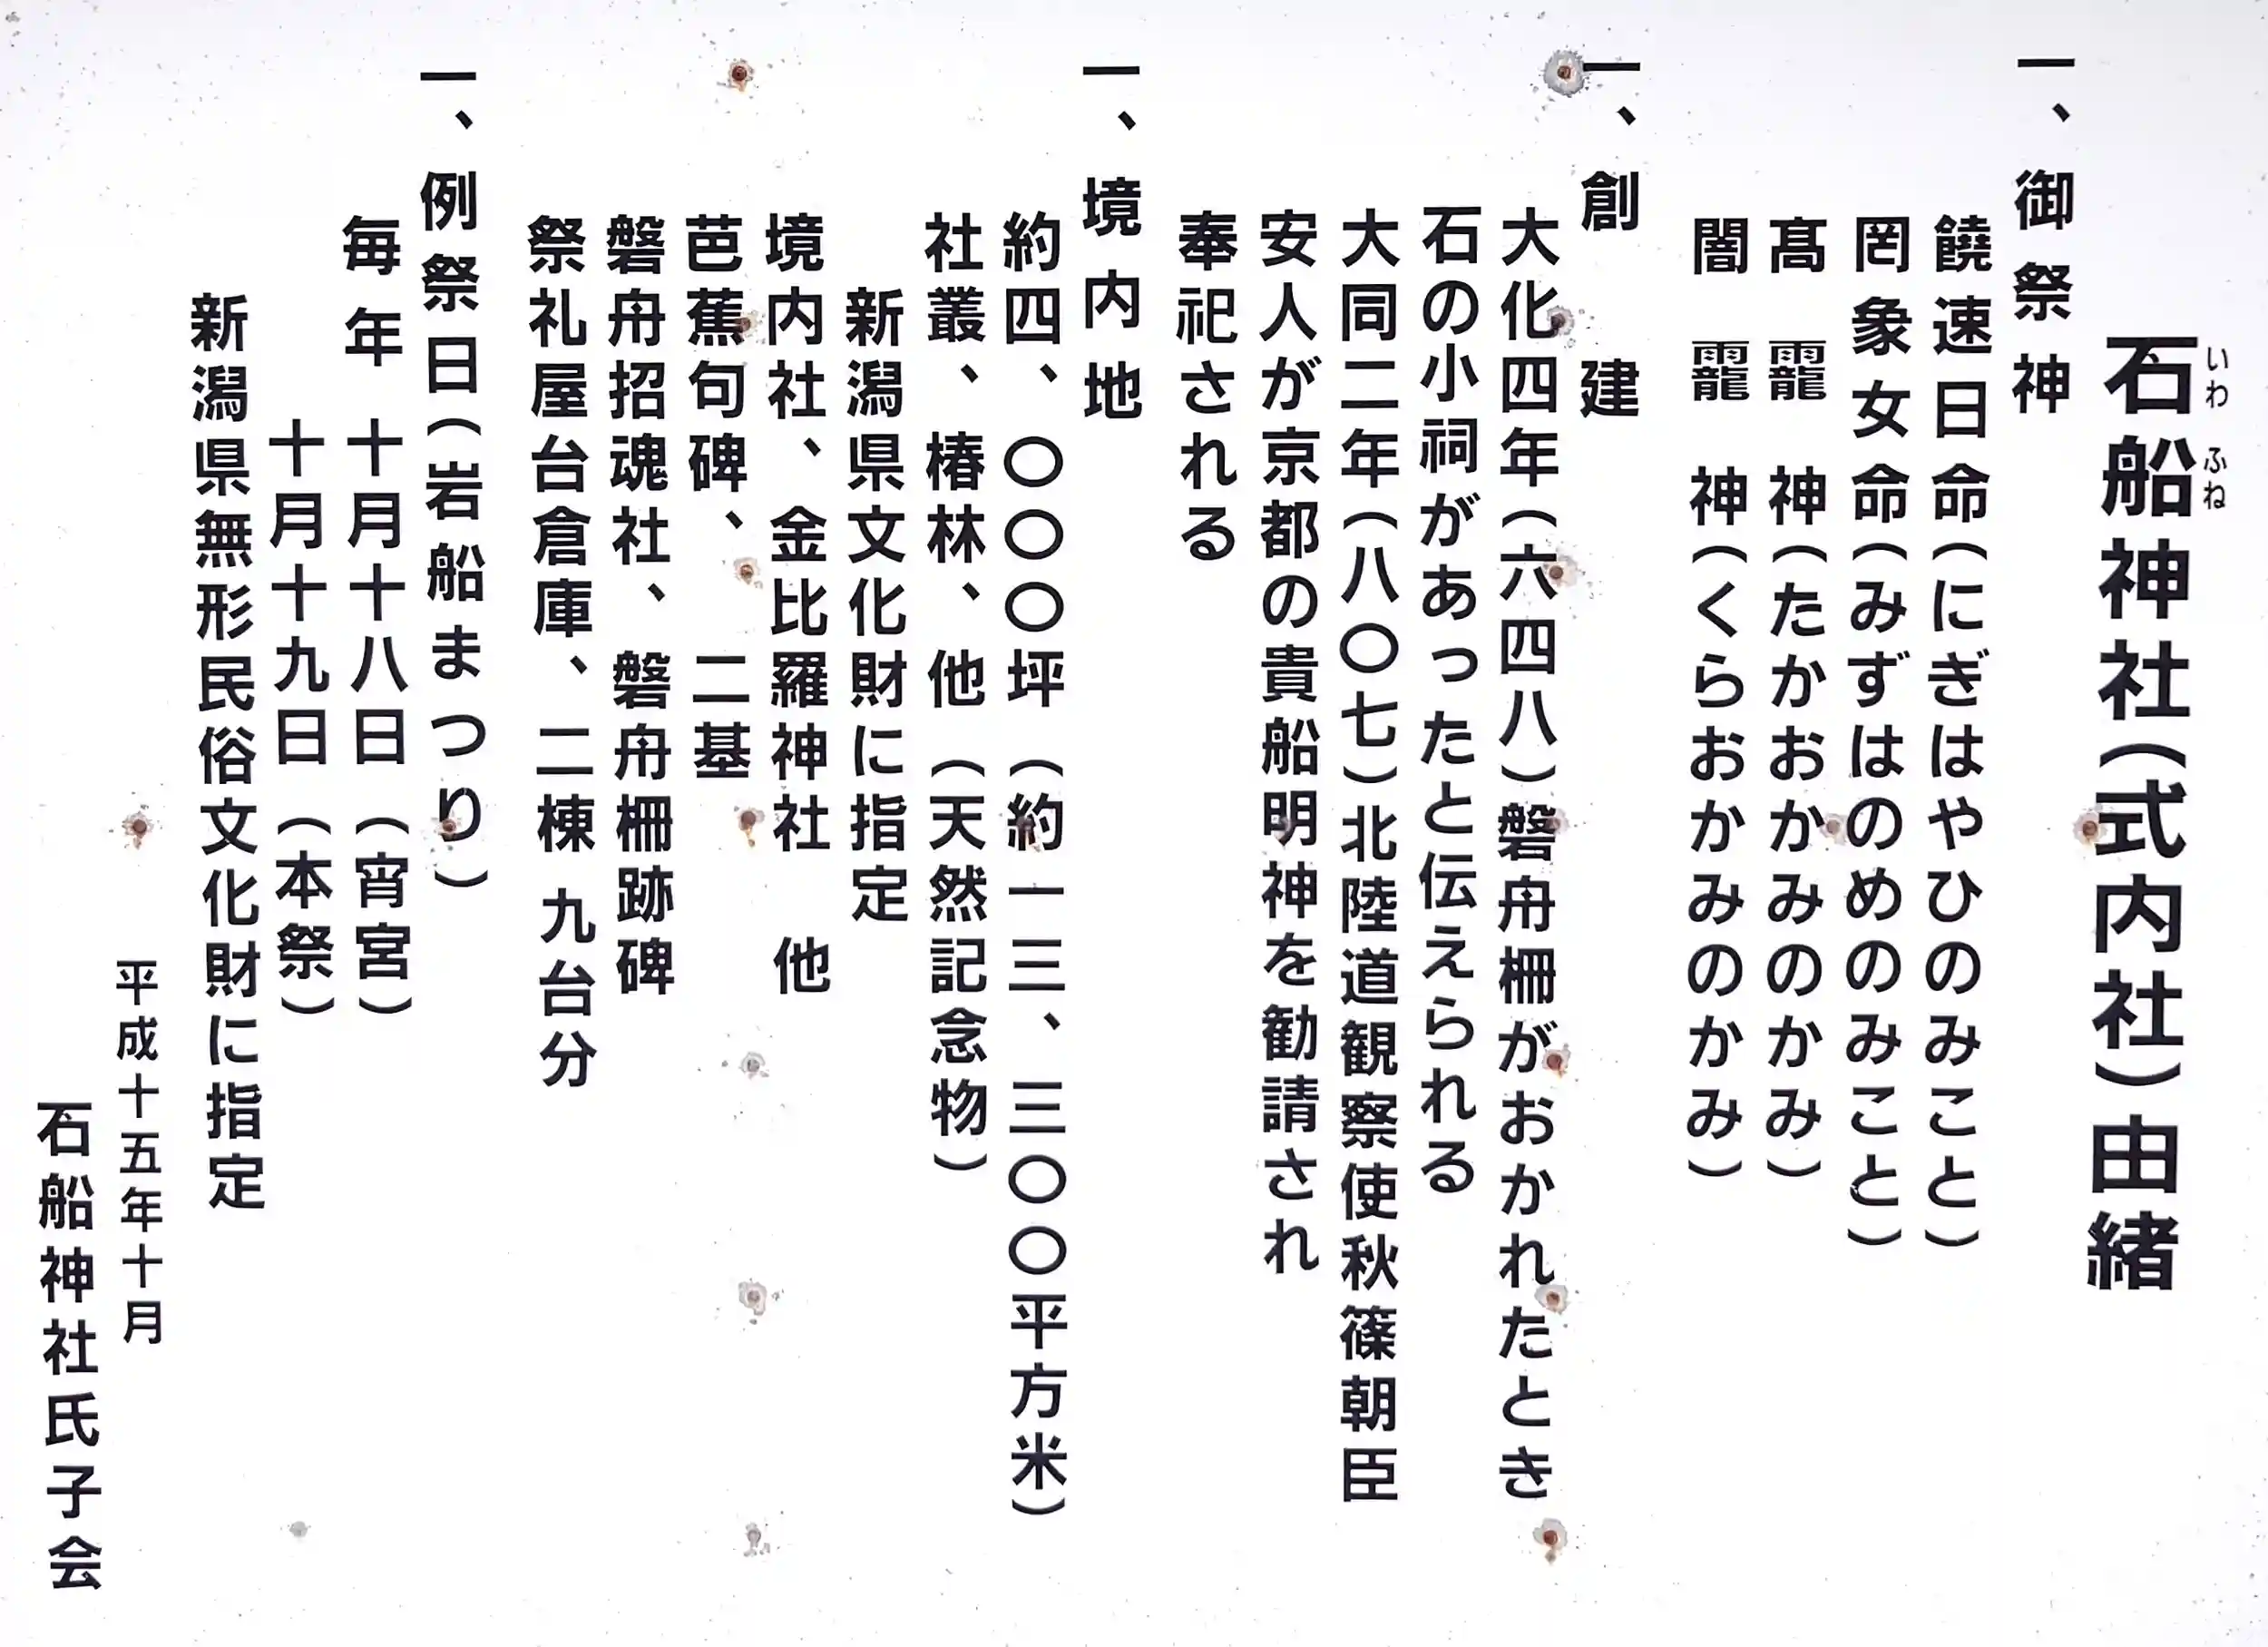 石船神社(式内社)由緒
いわ ふね
一、御祭神
饒速日命(にぎはやひのみこと)
罔象女命(みずはのめのみこと)
髙龗神(たかおかみのかみ)
闇龗神(くらおかみのかみ)
一、創 建
大化四年(六四八)磐舟柵がおかれたとき
石の小祠があったと伝えられる
大同二年(八〇七)北陸道観察使秋篠朝臣
安人が京都の貴船明神を勧請され
奉祀される
一、境内地
約四、〇〇〇坪(約一三、三〇〇平方米)
社叢、椿林、他(天然記念物)
新潟県文化財に指定
境内社、金比羅神社 他
芭蕉句碑、 二基
磐舟招魂社、磐舟柵跡碑
祭礼屋台倉庫、二棟 九台分
一、例祭日(岩船まつり)
毎年 十月十八日(宵宮)
十月十九日(本祭)
新潟県無形民俗文化財に指定
平成十五年十月
石船神社氏子会